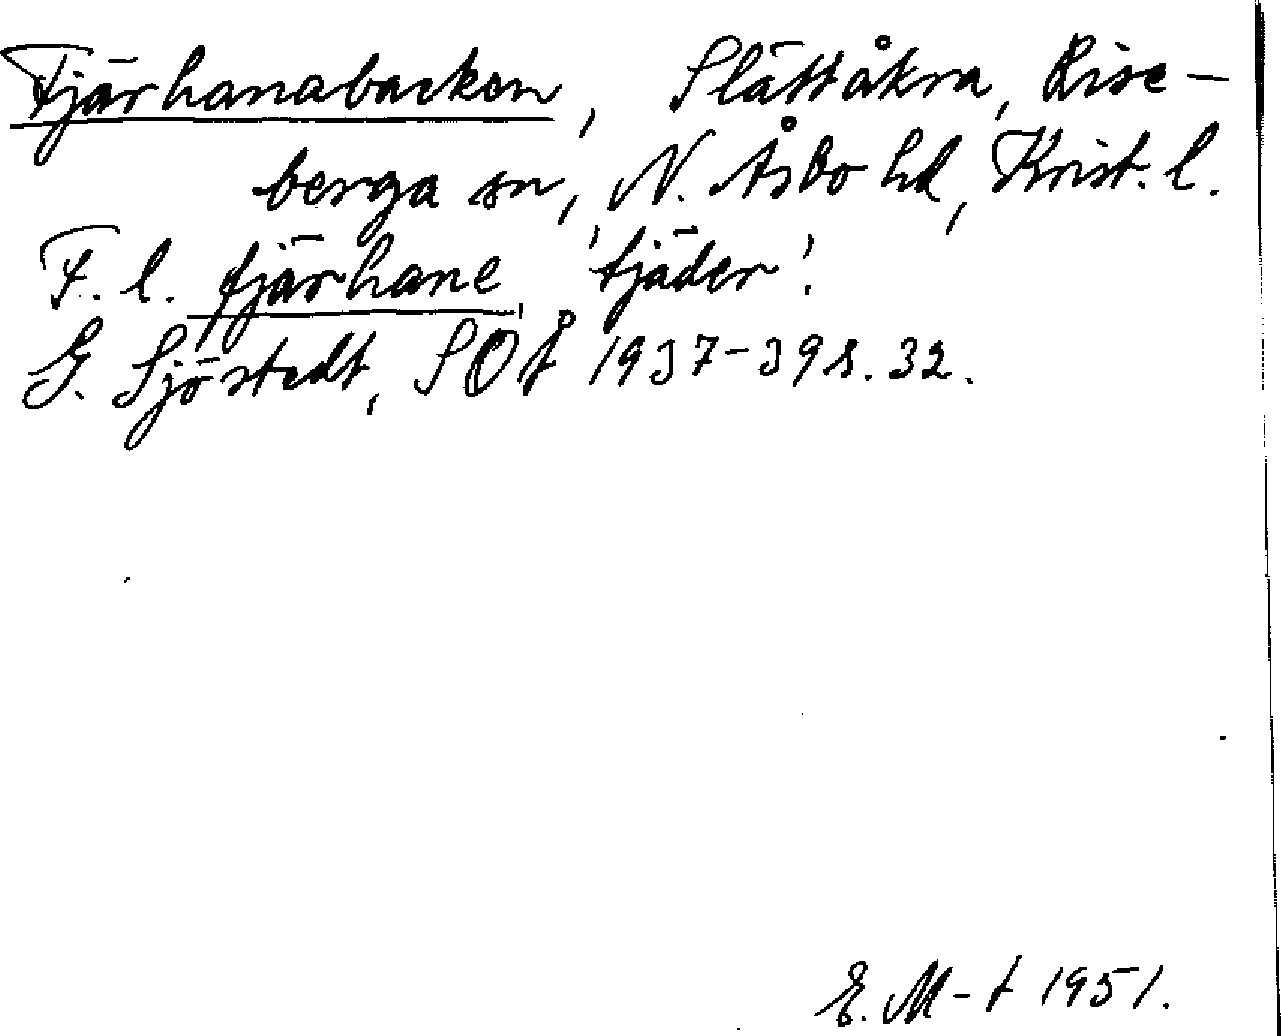 Fjärhanabacken, Slättåkra, Rise-
berga sn, N. Åsbo hd, Krist. l.
F. l. fjärhane 'tjäder'.
G. Sjöstedt, SOÅ 1937-39 s. 32.
E. M-t 1951.